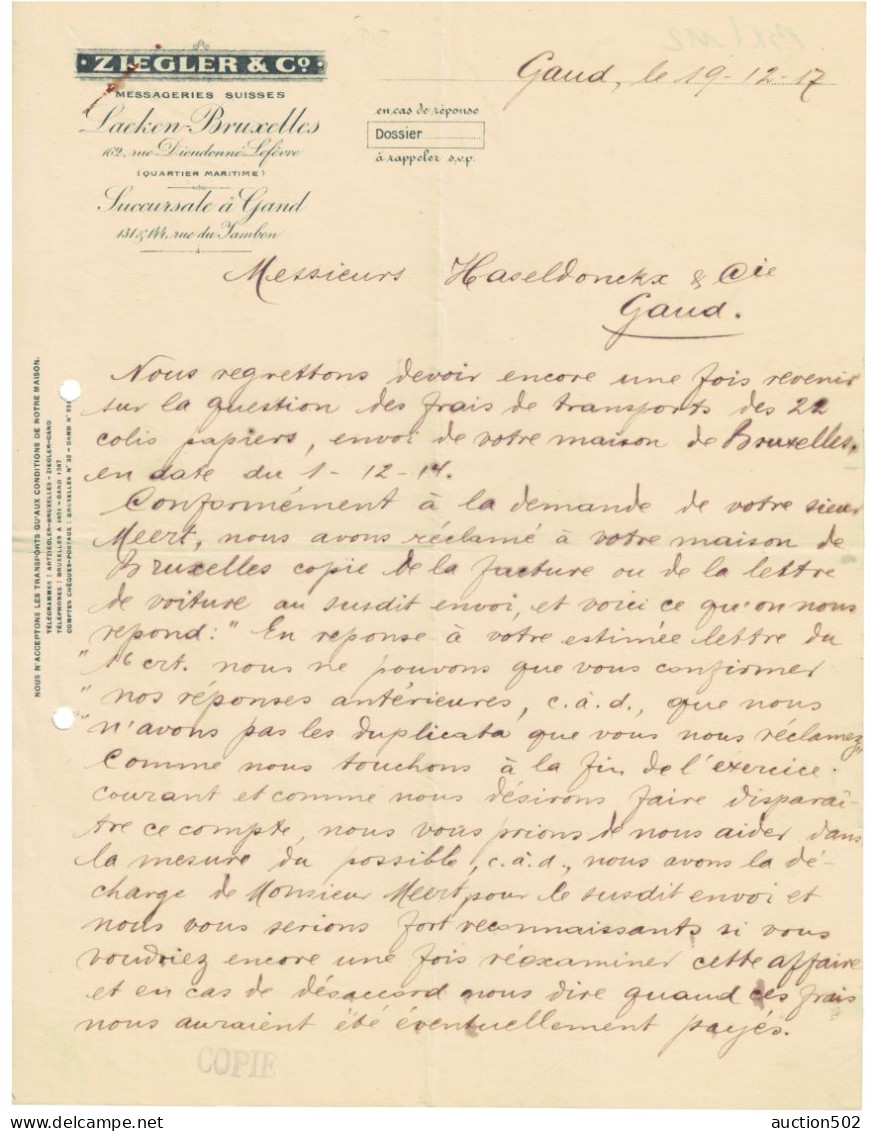 ZIEGLER & Co.
MESSAGERIES SUISSES
Laeken-Bruxelles
162, rue Dieudonné Lefèvre
(QUARTIER MARITIME)
Succursale à Gand
131 & 144, rue du Jambon
Gand, le 19-12-17
en cas de réponse
Dossier
à rappeler s.v.p.
Messieurs Haseldonckx & Cie
Gand.
NOUS N'ACCEPTONS LES TRANSPORTS QU'AUX CONDITIONS DE NOTRE MAISON.
TÉLÉGRAMMES: ARTZIEGLER-BRUXELLES - ZIEGLER-GAND
TÉLÉPHONES: BRUXELLES A
COMPTES CHÈQUES-POSTAUX: BRUXELLES N°
Nous regrettons devoir encore une fois revenir
sur la question des frais de transports des 22
colis papiers, envoi de votre maison de Bruxelles,
en date du 1-12-14.
Conformément à la demande de votre sieur
Meert, nous avons réclamé à votre maison de
Bruxelles copie de la facture ou de la lettre
de voiture au susdit envoi, et voici ce qu'on nous
repond: "En reponse à votre estimée lettre du
"16 crt. nous ne pouvons que vous confirmer
"nos réponses antérieures, c.à.d., que nous
"n'avons pas les duplicata que vous nous réclamez"
Comme nous touchons à la fin de l'exercice
courant et comme nous désirons faire disparaî-
tre ce compte, nous vous prions de nous aider dans
la mesure du possible, c.à.d., nous avons la dé-
charge de Monsieur Meert, pour le susdit envoi et
nous vous serions fort reconnaissants si vous
voudriez encore une fois réexaminer cette affaire
et en cas de désaccord nous dire quand ces frais
nous auraient été éventuellement payés.
COPIE
auction502